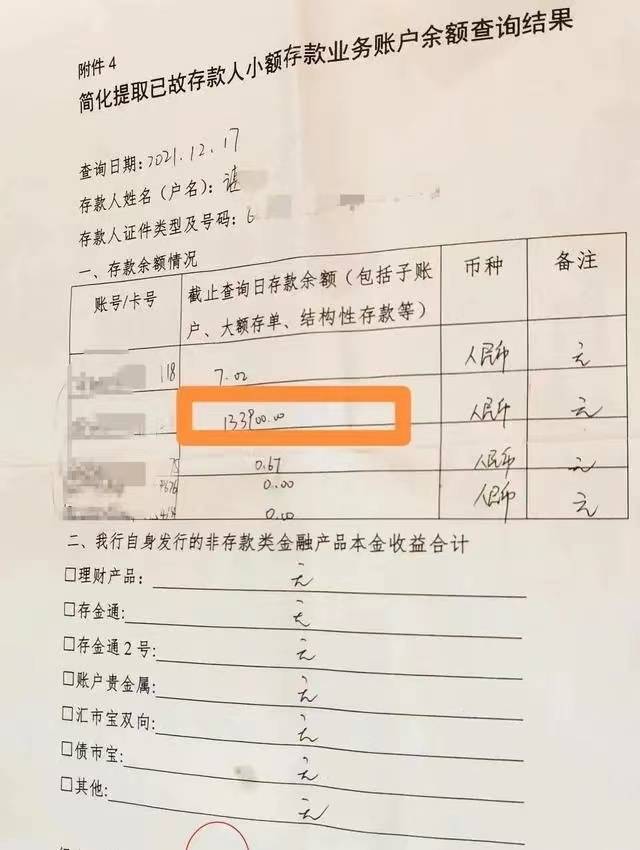 附件4
简化提取已故存款人小额存款业务账户余额查询结果
查询日期：2021.12.17
存款人姓名（户名）：谌
存款人证件类型及号码：6
一、存款余额情况
账号/卡号 截止查询日存款余额（包括子账户、大额存单、结构性存款等） 币种 备注
118 7.02 人民币 无
133900.00 人民币 无
75 0.67 人民币 无
7676 0.00 人民币 无
0.00
二、我行自身发行的非存款类金融产品本金收益合计
□理财产品： 无
□存金通： 无
□存金通2号： 无
□账户贵金属： 无
□汇市宝双向： 无
□债市宝： 无
□其他： 无